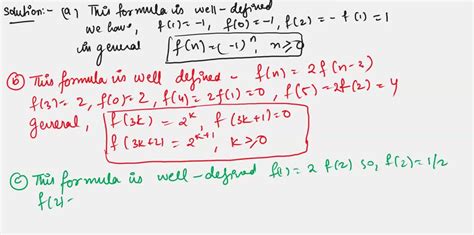 Solution:- (a) This formula is well-defined
we have, f(1)=-1, f(0)=-1, f(2)=-f(1)=1
in general f(n)=(-1)^n, n≥0
(b) This formula is well defined - f(n)=2f(n-3)
f(3)=2, f(0)=2, f(4)=2f(1)=0, f(5)=2f(2)=4
general, f(3k)=2^k, f(3k+1)=0
f(3k+2)=2^{k+1}, k≥0
(c) This formula is well-defined f(1)=2f(2) so, f(2)=1/2
f(2)=